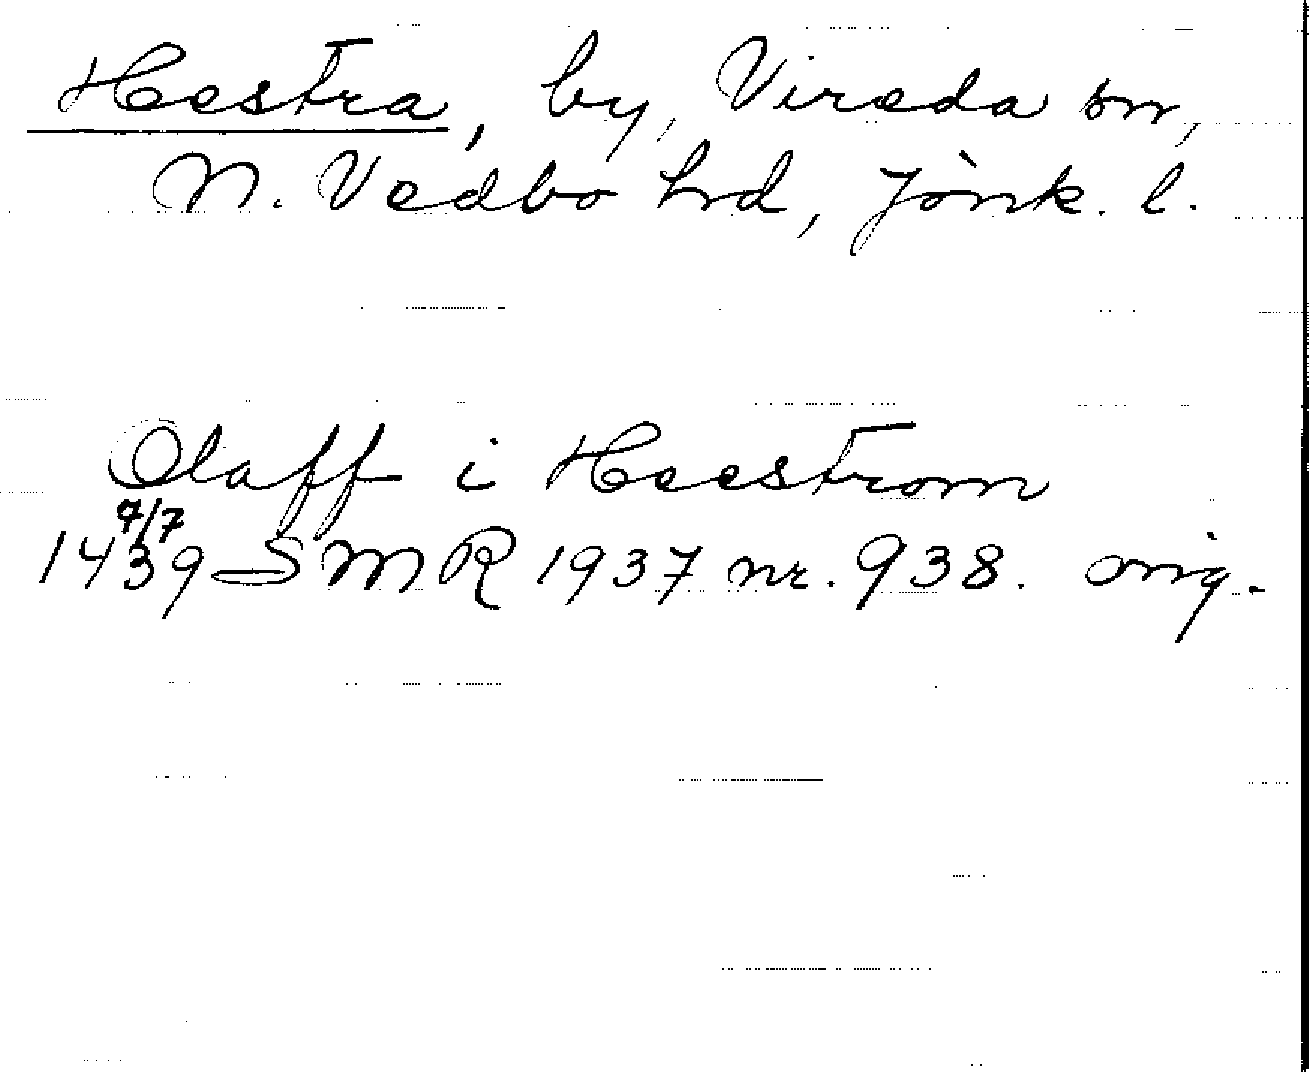 Hestra, by, Vireda sn,
N. Vedbo hd, Jönk. l.
Olaff i Heestrom
7/7
1439 SMR 1937 nr. 938. orig.